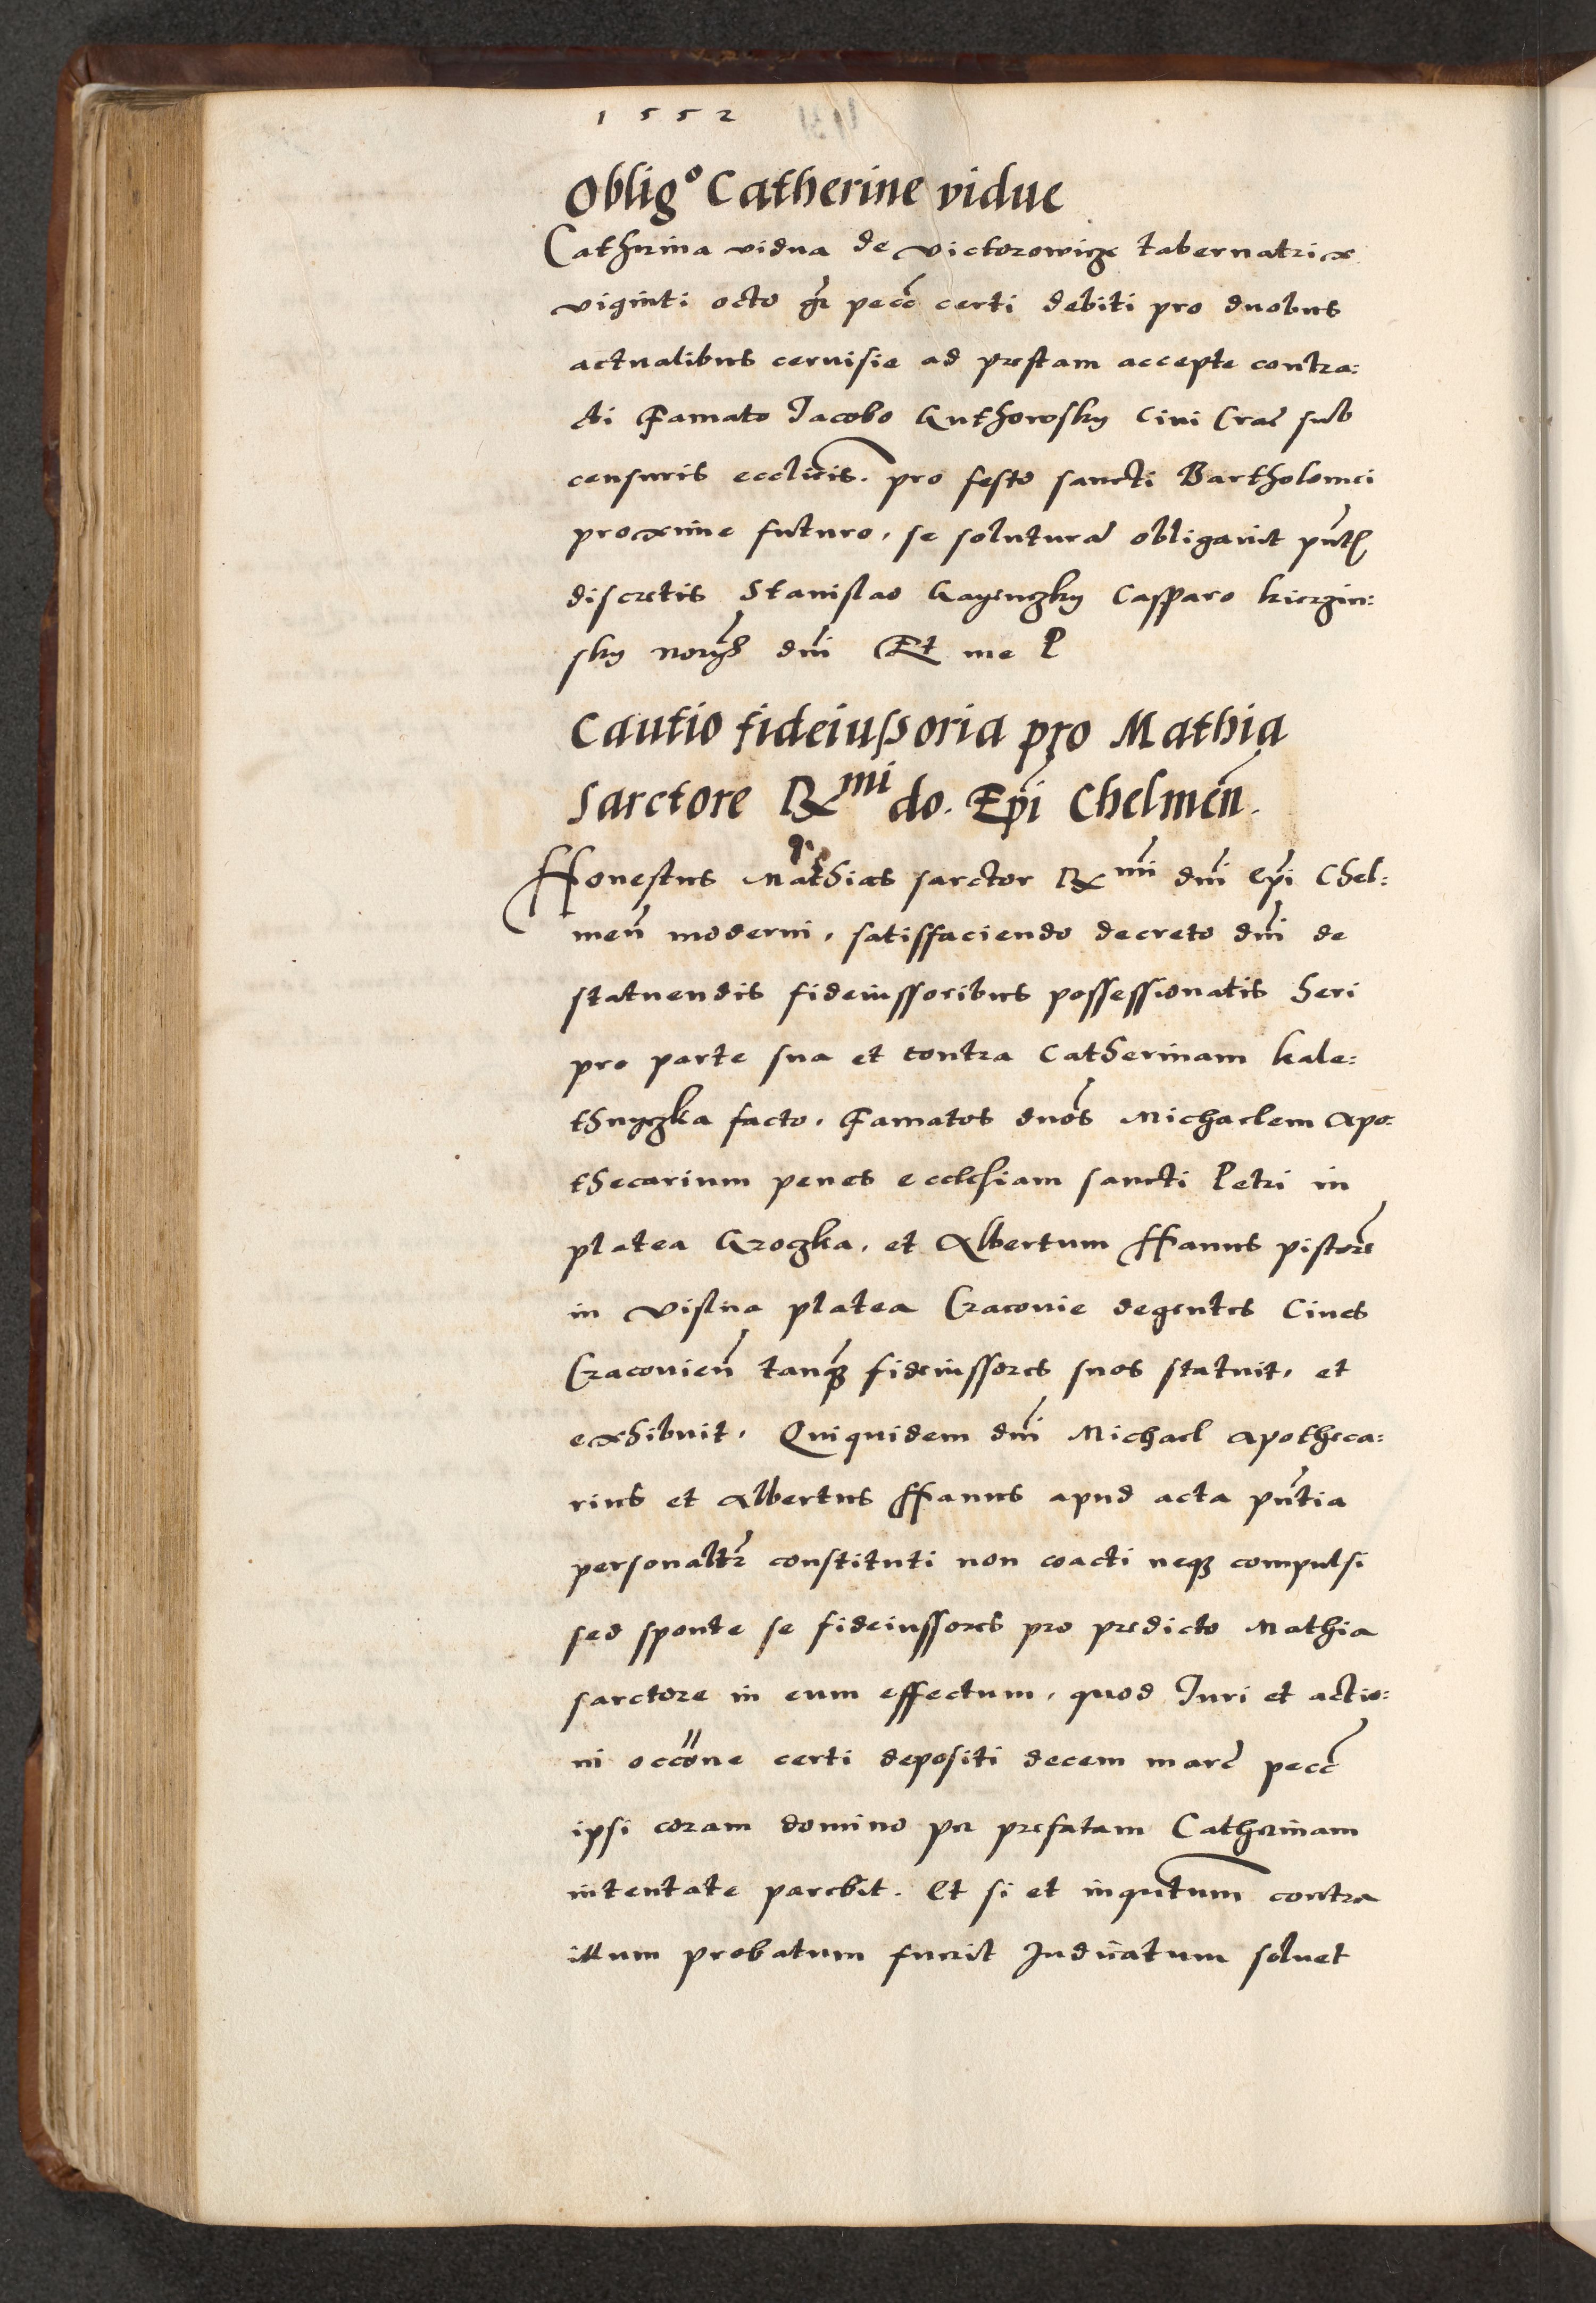 1552
Oblig° Catherine vidue
Catherina vidua de Victorowicze tabernatrix
viginti octo gr̃ pecc̃ certi debiti pro duobus
actualibus cervisie ad prestam accepte contra:
cti Famato Jacobo Guthowsky Civi Crac̃ sub
censuris ecclicis. pro festo sancti Bartholomei
proxime futuro, se soluturã obligavit pñtꝭ
discretis Stanislao Gayenczky Casparo kierzin:
sky norijs dñi Et me P
Cautio fideiussoria pro Mathia
Sarctore R mi do. Epi Chelmeñ.
Honestus Mathias sarctor R mi dñi Epi Chel:
meñ moderni, satisffaciendo decreto dñi de
statuendis fideiussoribus possessionatis heri
pro parte sua et contra Catherinam kale:
thnyczka facto, Famatos duos Michaelem Apo:
thecarium penes ecclesiam sancti Petri in
platea Groczka, et Albertum Hanus pistorẽ
in Vislna platea Cracovie degentes Cives
Cracovieñ tanqʒ fideiussores suos statuit, et
exhibuit, Quiquidem dñi Michael Apotheca:
rius et Albertus Hanus apud acta pñtia
personaltr̃ constituti non coacti neqʒ compulsi
sed sponte se fideiussores pro predicto Mathia
sarctore in eum effectum, quod Juri et actio:
ni occõne certi depositi decem marc̃ pecc̃
ipsi coram domino per prefatam Catherinam
intentate parebit. Et si et inqutum contra
illum probatum fuerit Judicatum solvet